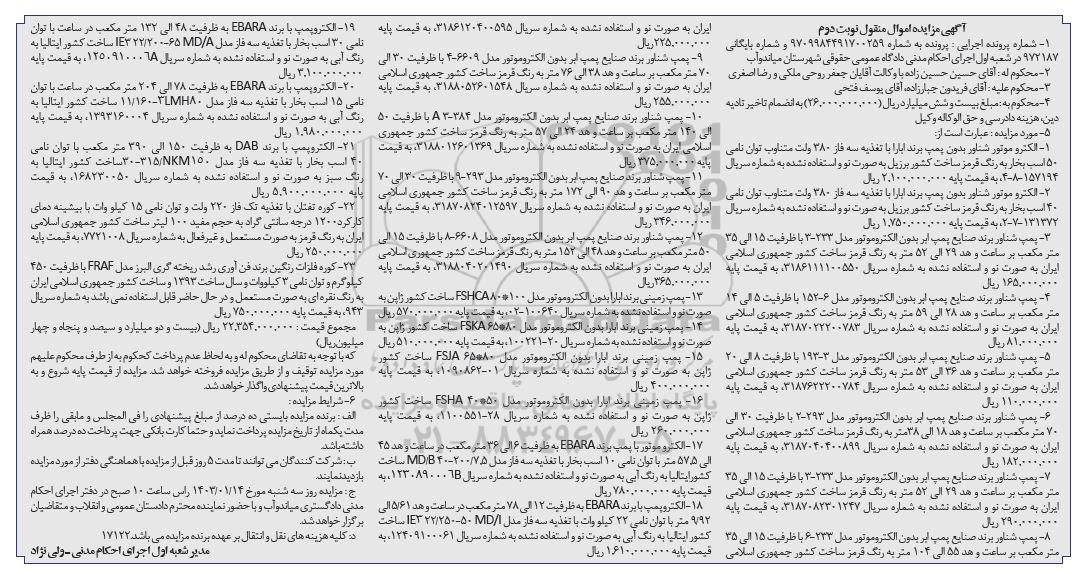 آگهی مزایده اموال منقول نوبت دوم
۱- شماره پرونده اجرایی : پرونده به شماره ۹۷۰۹۹۸۴۴۹۱۷۰۰۲۵۹ و شماره بایگانی
۹۷۲۱۸۷ در شعبه اول اجرای احکام مدنی دادگاه عمومی حقوقی شهرستان میاندوآب
۲-محکوم له : آقای حسین حسین زاده با وکالت آقایان جعفر روحی ملکی و رضا اصغری
۳-محکوم علیه : آقای فریدون جبارزاده، آقای یوسف فتحی
۴-محکوم به: مبلغ بیست و شش میلیارد ریال (۲۶،۰۰۰،۰۰۰،۰۰۰) به انضمام تاخیر تادیه
دین، هزینه دادرسی و حق الوکاله وکیل
۵-مورد مزایده : عبارت است از:
۱- الکترو موتور شناور بدون پمپ برند ابارا با تغذیه سه فاز ۳۸۰ ولت متناوب توان نامی
۵۰ اسب بخار به رنگ قرمز ساخت کشور برزیل به صورت نو و استفاده نشده به شماره سریال
۱۵۷۱۹۴-۸-۴، به قیمت پایه ۲،۱۰۰،۰۰۰،۰۰۰ ریال
۲- الکترو موتور شناور بدون پمپ برند ابارا با تغذیه سه فاز ۳۸۰ ولت متناوب توان نامی
۴۰ اسب بخار به رنگ قرمز ساخت کشور برزیل به صورت نو و استفاده نشده به شماره سریال
۱۳۱۳۷۲-۷-۲، به قیمت پایه ۱،۷۵۰،۰۰۰،۰۰۰ ریال
۳- پمپ شناور برند صنایع پمپ ابر بدون الکتروموتور مدل ۲۳۳-۳ با ظرفیت ۱۵ الی ۳۵
متر مکعب بر ساعت و هد ۲۹ الی ۵۲ متر به رنگ قرمز ساخت کشور جمهوری اسلامی
ایران به صورت نو و استفاده نشده به شماره سریال ۳۱۸۶۱۱۱۱۰۰۵۵۰، به قیمت پایه
۱۶۵،۰۰۰،۰۰۰ ریال
۴- پمپ شناور برند صنایع پمپ ابر بدون الکتروموتور مدل ۱۵۲-۶ با ظرفیت ۵ الی ۱۴
متر مکعب بر ساعت و هد ۲۸ الی ۵۹ متر به رنگ قرمز ساخت کشور جمهوری اسلامی
ایران به صورت نو و استفاده نشده به شماره سریال ۳۱۸۷۰۲۲۲۰۰۷۸۳، به قیمت پایه
۸۱،۰۰۰،۰۰۰ ریال
۵- پمپ شناور برند صنایع پمپ ابر بدون الکتروموتور مدل ۱۹۳-۳ با ظرفیت ۸ الی ۲۰
متر مکعب بر ساعت و هد ۳۶ الی ۵۳ متر به رنگ قرمز ساخت کشور جمهوری اسلامی
ایران به صورت نو و استفاده نشده به شماره سریال ۳۱۸۷۶۲۲۲۰۰۷۸۴، به قیمت پایه
۱۱۰،۰۰۰،۰۰۰ ریال
۶- پمپ شناور برند صنایع پمپ ابر بدون الکتروموتور مدل ۲۹۳-۲ با ظرفیت ۳۰ الی
۷۰ متر مکعب بر ساعت و هد ۱۸ الی ۳۸متر به رنگ قرمز ساخت کشور جمهوری اسلامی
ایران به صورت نو و استفاده نشده به شماره سریال ۳۱۸۷۰۴۰۴۰۰۸۹۹، به قیمت پایه
۱۸۲،۰۰۰،۰۰۰ ریال
۷- پمپ شناور برند صنایع پمپ ابر بدون الکتروموتور مدل ۲۳۳-۳ با ظرفیت ۱۵ الی ۳۵
متر مکعب بر ساعت و هد ۲۹ الی ۵۲ متر به رنگ قرمز ساخت کشور جمهوری اسلامی
ایران به صورت نو و استفاده نشده به شماره سریال ۳۱۸۷۰۸۲۳۰۱۲۴۷، به قیمت پایه
۲۹۰،۰۰۰،۰۰۰ ریال
۸- پمپ شناور برند صنایع پمپ ابر بدون الکتروموتور مدل ۲۳۳-۶ با ظرفیت ۱۵ الی ۳۵
متر مکعب بر ساعت و هد ۵۵ الی ۱۰۴ متر به رنگ قرمز ساخت کشور جمهوری اسلامی
ایران به صورت نو و استفاده نشده به شماره سریال ۳۱۸۶۱۲۰۴۰۰۵۹۵، به قیمت پایه
۲۲۵،۰۰۰،۰۰۰ریال
۹- پمپ شناور برند صنایع پمپ ابر بدون الکتروموتور مدل ۶۶۰۹-۴ با ظرفیت ۳۰ الی
۷۰ متر مکعب بر ساعت و هد ۳۸ الی ۷۶ متر به رنگ قرمز ساخت کشور جمهوری اسلامی
ایران به صورت نو و استفاده نشده به شماره سریال ۳۱۸۸۰۵۲۶۰۱۵۴۸، به قیمت پایه
۲۵۵،۰۰۰،۰۰۰ ریال
۱۰- پمپ شناور برند صنایع پمپ ابر بدون الکتروموتور مدل ۳۸۴-۳ A با ظرفیت ۵۰
الی ۱۴۰ متر مکعب بر ساعت و هد ۲۴ الی ۵۷ متر به رنگ قرمز ساخت کشور جمهوری
اسلامی ایران به صورت نو و استفاده نشده به شماره سریال ۳۱۸۸۰۱۲۶۰۱۳۶۹، به قیمت
پایه ۳۷۵،۰۰۰،۰۰۰ ریال
۱۱- پمپ شناور برند صنایع پمپ ابر بدون الکتروموتور مدل ۲۹۳-۹ با ظرفیت ۳۰ الی ۷۰
متر مکعب بر ساعت و هد ۹۰ الی ۱۷۲ متر به رنگ قرمز ساخت کشور جمهوری اسلامی
ایران به صورت نو و استفاده نشده به شماره سریال ۳۱۸۷۰۸۲۴۰۱۲۵۹۷، به قیمت پایه
۳۴۶،۰۰۰،۰۰۰ ریال
۱۲- پمپ شناور برند صنایع پمپ ابر بدون الکتروموتور مدل ۶۶۰۸-۸ با ظرفیت ۱۵ الی
۵۰ متر مکعب بر ساعت و هد ۴۸ الی ۱۵۲ متر به رنگ قرمز ساخت کشور جمهوری اسلامی
ایران به صورت نو و استفاده نشده به شماره سریال ۳۱۸۸۰۴۰۲۰۱۴۹۰، به قیمت پایه
۳۶۵،۰۰۰،۰۰۰ریال
۱۳-پمپ زمینی برند ابارا بدون الکتروموتور مدل FSHCA ۸۰*۱۰۰ ساخت کشور ژاپن به
صورت نو و استفاده نشده به شماره سریال ۱۰۰۶۴۰-۰۲، به قیمت پایه ۵۷۰،۰۰۰،۰۰۰ ریال
۱۴- پمپ زمینی برند ابارا بدون الکتروموتور مدل FSKA ۶۵*۸۰ ساخت کشور ژاپن به
صورت نو و استفاده نشده به شماره سریال ۲۰-۱۰۰۲۲۱، به قیمت پایه ۵۱۰،۰۰۰،۰۰۰ ریال
۱۵- پمپ زمینی برند ابارا بدون الکتروموتور مدل FSJA ۶۵*۸۰ ساخت کشور
ژاپن به صورت نو و استفاده نشده به شماره سریال ۰۱-۱۰۹۰۸۶۲، به قیمت پایه
۴۰۰،۰۰۰،۰۰۰ ریال
۱۶- پمپ زمینی برند ابارا بدون الکتروموتور مدل FSHA ۴۰*۵۰ ساخت کشور
ژاپن به صورت نو و استفاده نشده به شماره سریال ۲۸-۱۱۰۰۵۵۱، به قیمت پایه
۲۶۰،۰۰۰،۰۰۰ ریال
۱۷-الکترو موتور با پمپ برند EBARA به ظرفیت ۶ الی ۳۶ متر مکعب در ساعت و هد ۴۵
الی ۵۷,۵ متر با توان نامی ۱۰ اسب بخار با تغذیه سه فاز مدل MD/B ۴۰-۲۰۰/۷,۵ ساخت
کشور ایتالیا به رنگ آبی به صورت نو و استفاده نشده به شماره سریال ۱۲۳۰۸۹۰۰۰۶B، به
قیمت پایه ۷۸۰،۰۰۰،۰۰۰ ریال
۱۸-الکتروپمپ با برند EBARA به ظرفیت ۱۲ الی ۷۸ متر مکعب در ساعت و هد ۵/۶۱ الی
۹/۹۲ متر با توان نامی ۲۲ کیلو وات با تغذیه سه فاز مدل IE۳ ۲۲/۲۵۰-۵۰ MD/I ساخت
کشور ایتالیا به رنگ آبی به صورت نو و استفاده نشده به شماره سریال ۱۲۴۰۹۱۰۰۰۶۱، به
قیمت پایه ۱،۶۱۰،۰۰۰،۰۰۰ ریال
۱۹- الکتروپمپ با برند EBARA به ظرفیت ۴۸ الی ۱۳۲ متر مکعب در ساعت با توان
نامی ۳۰ اسب بخار با تغذیه سه فاز مدل IE۳ ۲۲/۲۰۰-۶۵ MD/A ساخت کشور ایتالیا به
رنگ آبی به صورت نو و استفاده نشده به شماره سریال ۱۲۵۰۹۱۰۰۰۶A، به قیمت پایه
۳،۱۰۰،۰۰۰،۰۰۰ ریال
۲۰- الکتروپمپ با برند EBARA به ظرفیت ۷۸ الی ۲۰۴ متر مکعب در ساعت با توان
نامی ۱۵ اسب بخار با تغذیه سه فاز مدل ۱۱/۱۶۰-۳LMH۸۰ ساخت کشور ایتالیا به
رنگ آبی به صورت نو و استفاده نشده به شماره سریال ۱۳۹۳۱۶۰۰۰۴، به قیمت پایه
۱،۹۸۰،۰۰۰،۰۰۰ ریال
۲۱- الکتروپمپ با برند DAB به ظرفیت ۱۵۰ الی ۳۹۰ متر مکعب با توان نامی
۴۰ اسب بخار با تغذیه سه فاز مدل ۳۰-۳۱۵/NKM۱۵۰ ساخت کشور ایتالیا به
رنگ سبز به صورت نو و استفاده نشده به شماره سریال ۱۶۸۲۳۰۰۵۰، به قیمت
پایه ۵،۹۰۰،۰۰۰،۰۰۰ ریال
۲۲- کوره تفتان با تغذیه تک فاز ۲۲۰ ولت و توان نامی ۱۵ کیلو وات با بیشینه دمای
کارکرد۱۲۰۰ درجه سانتی گراد به حجم مفید ۱۰۰ لیتر ساخت کشور جمهوری اسلامی
ایران به رنگ قرمز به صورت مستعمل و غیرفعال به شماره سریال ۷۷۲۱۰۰۸، به قیمت پایه
۲۵۰،۰۰۰،۰۰۰ ریال
۲۳- کوره فلزات رنگین برند فن آوری رشد ریخته گری البرز مدل FRAF با ظرفیت ۴۵۰
کیلوگرم و توان نامی ۳ کیلووات و سال ساخت ۱۳۹۳ و ساخت کشور جمهوری اسلامی ایران
به رنگ نقره ای به صورت مستعمل و در حال حاضر قابل استفاده نمی باشد به شماره سریال
۹۴۳، به قیمت پایه ۷۵۰،۰۰۰،۰۰۰ ریال
مجموع قیمت : ۲۲،۳۵۴،۰۰۰،۰۰۰ ریال (بیست و دو میلیارد و سیصد و پنجاه و چهار
میلیون ریال)
که با توجه به تقاضای محکوم له و به لحاظ عدم پرداخت محکوم به از طرف محکوم علیهم
مورد مزایده توقیف و از طریق مزایده فروخته خواهد شد. مزایده از قیمت پایه شروع و به
بالاترین قیمت پیشنهادی واگذار خواهد شد.
۶- شرایط مزایده :
الف : برنده مزایده بایستی ده درصد از مبلغ پیشنهادی را فی المجلس و مابقی را ظرف
مدت یکماه از تاریخ مزایده پرداخت نماید و حتما کارت بانکی جهت پرداخت ده درصد همراه
داشته باشد.
ب: شرکت کنندگان می توانند تا مدت ۵ روز قبل از مزایده با هماهنگی دفتر از مورد مزایده
بازدید نمایند.
ج : مزایده روز سه شنبه مورخ ۱۴۰۳/۰۱/۱۴ راس ساعت ۱۰ صبح در دفتر اجرای احکام
مدنی دادگستری میاندوآب و با حضور نماینده محترم دادستان عمومی و انقلاب و متقاضیان
برگزار خواهد شد.
د: کلیه هزینه های نقل و انتقال بر عهده برنده مزایده می باشد.۱۷۱۲۲
مدیر شعبه اول اجرای احکام مدنی - ولی نژاد